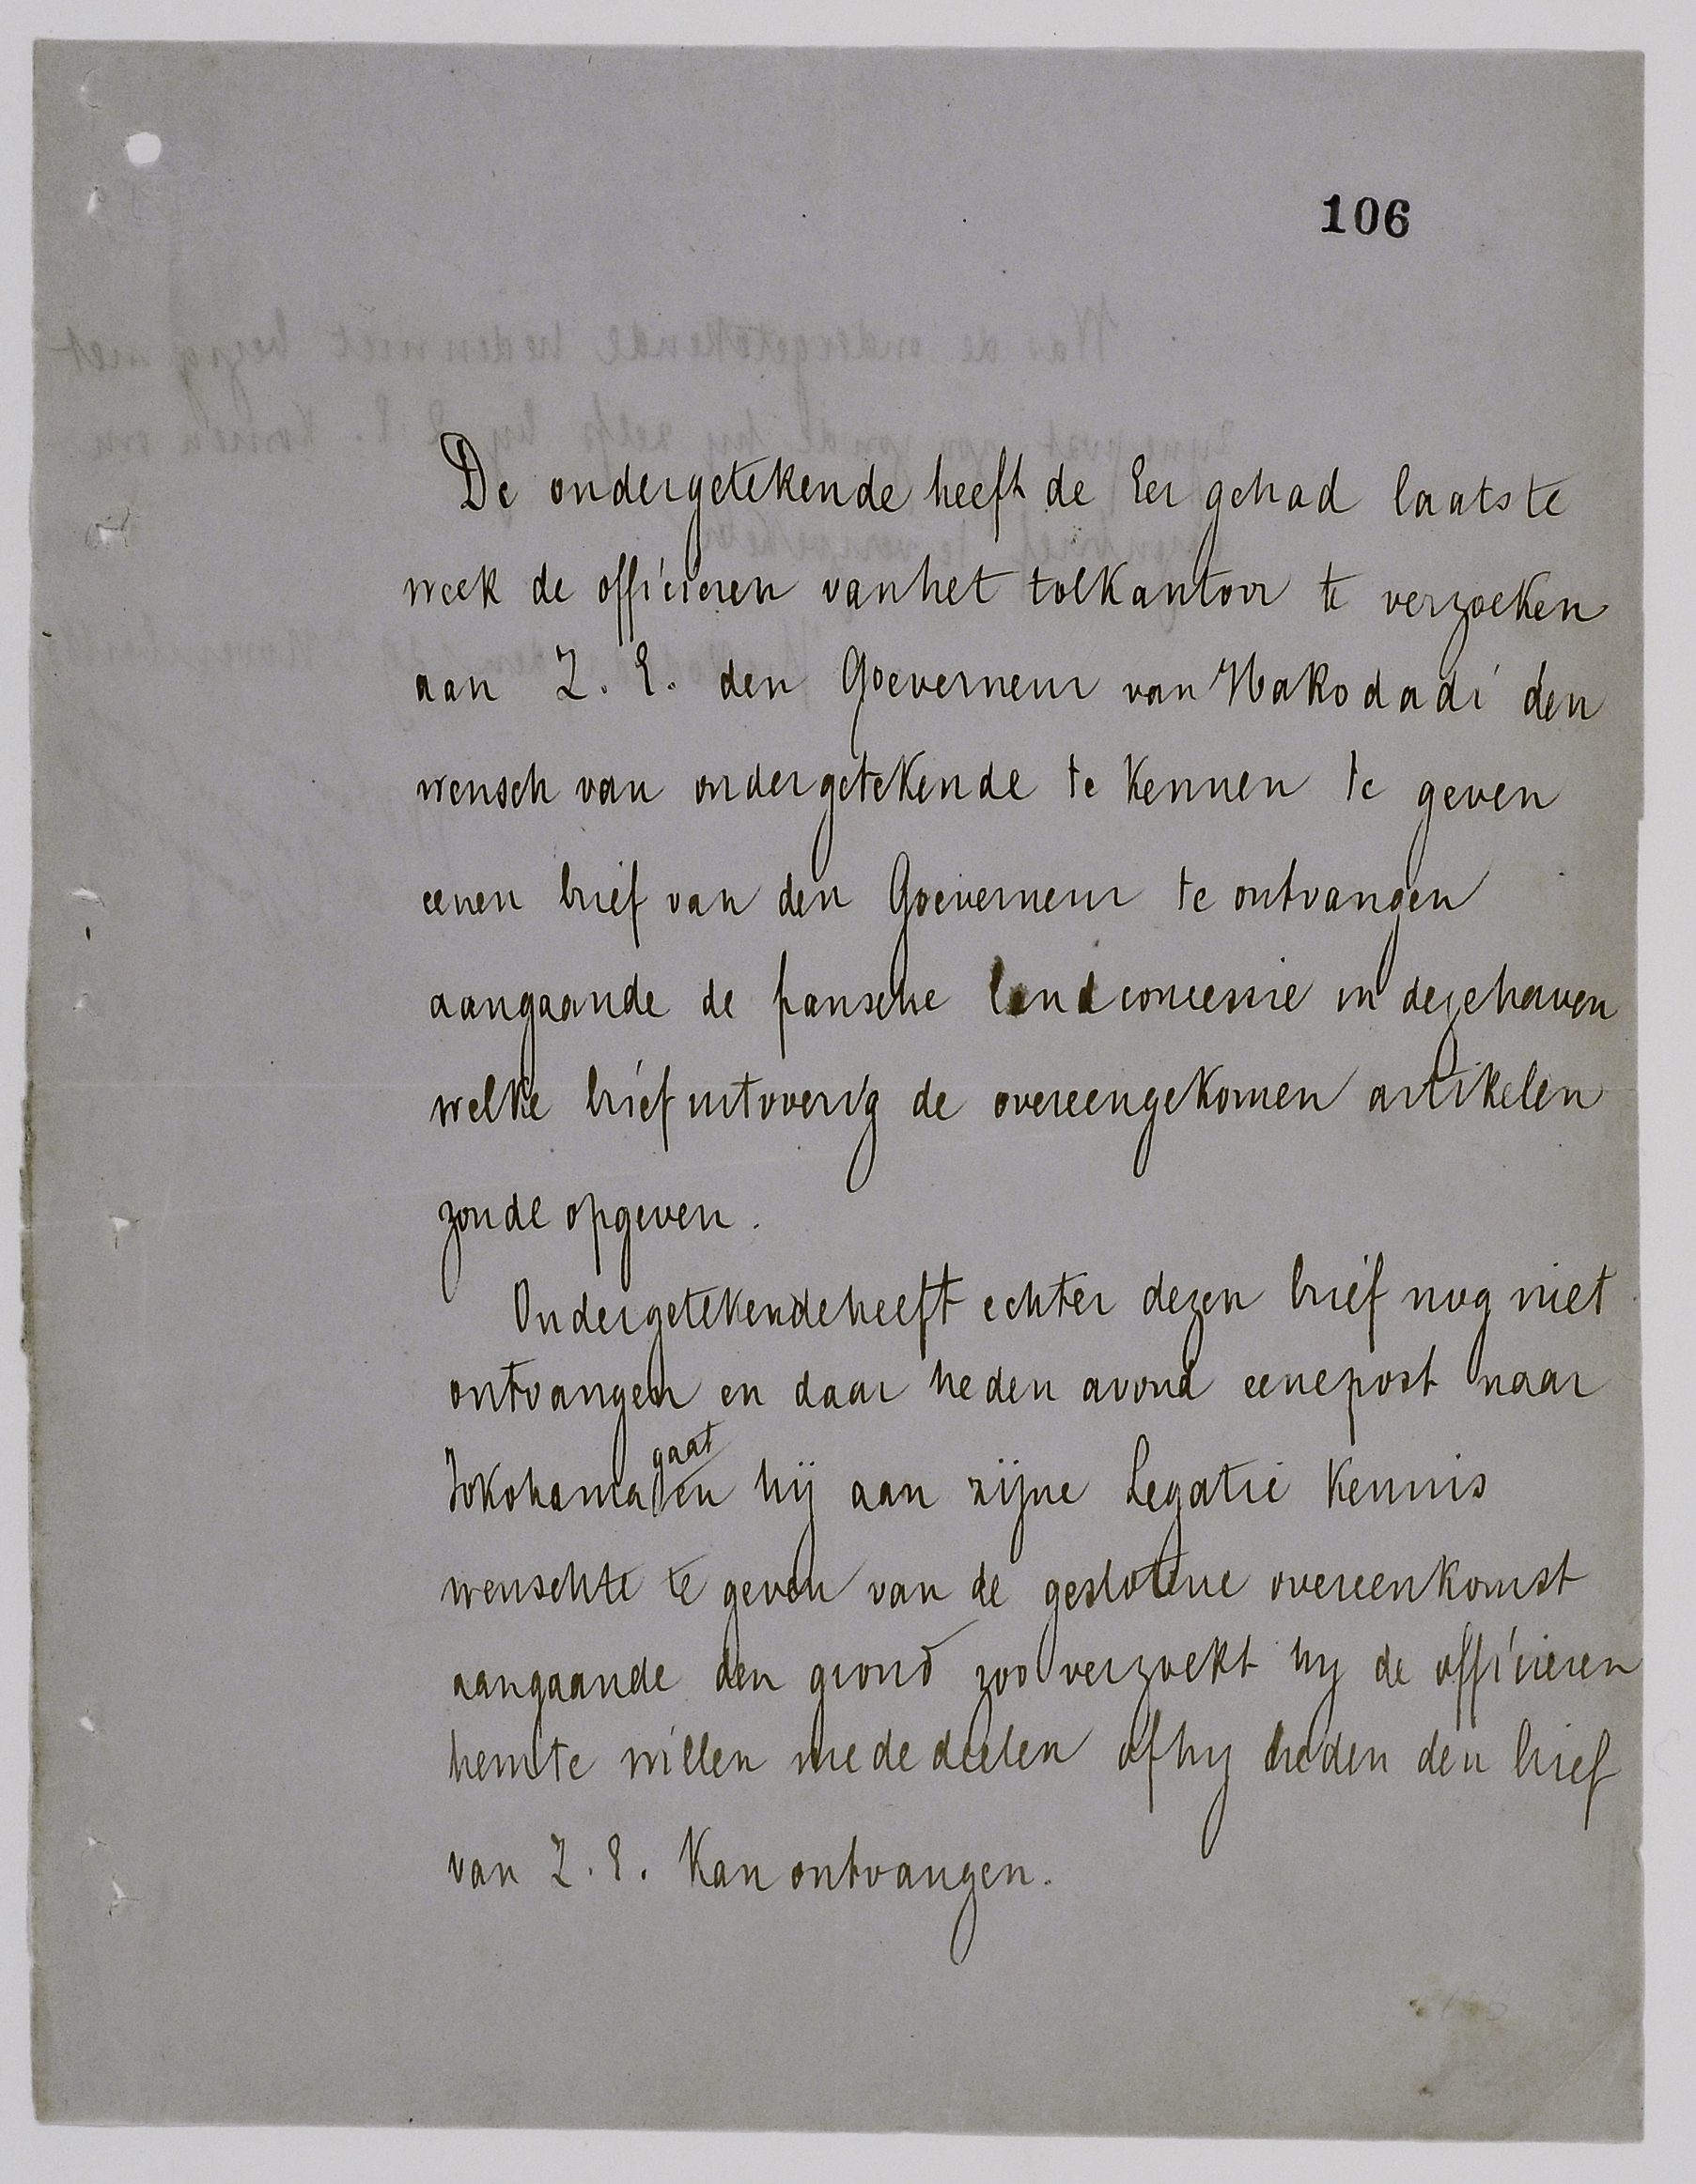 106
De ondergetekende heeft de Eer gehad laatste
week de officieren van het tolkantoor te verzoeken
aan Z. E. den Goeverneur van Hakodadi den
wensch van ondergetekende te kennen te geven
eenen brief van den Goeverneur te ontvangen
aangaande de fansche landconcessie in deze haven
welke brief uitvoerig de overeengekomen artikelen
zoude opgeven.
Ondergetekende heeft echter dezen brief nog niet
ontvangen en daar heden avond eene post naar
gaat
Yokohama en hij aan zijne Legatie kennis
wenschte te geven van de geslotene overeenkomst
aangaande den grond zoo verzoekt hy de officieren
hem te willen mededeelen of hy heden den brief
van Z. E. kan ontvangen.